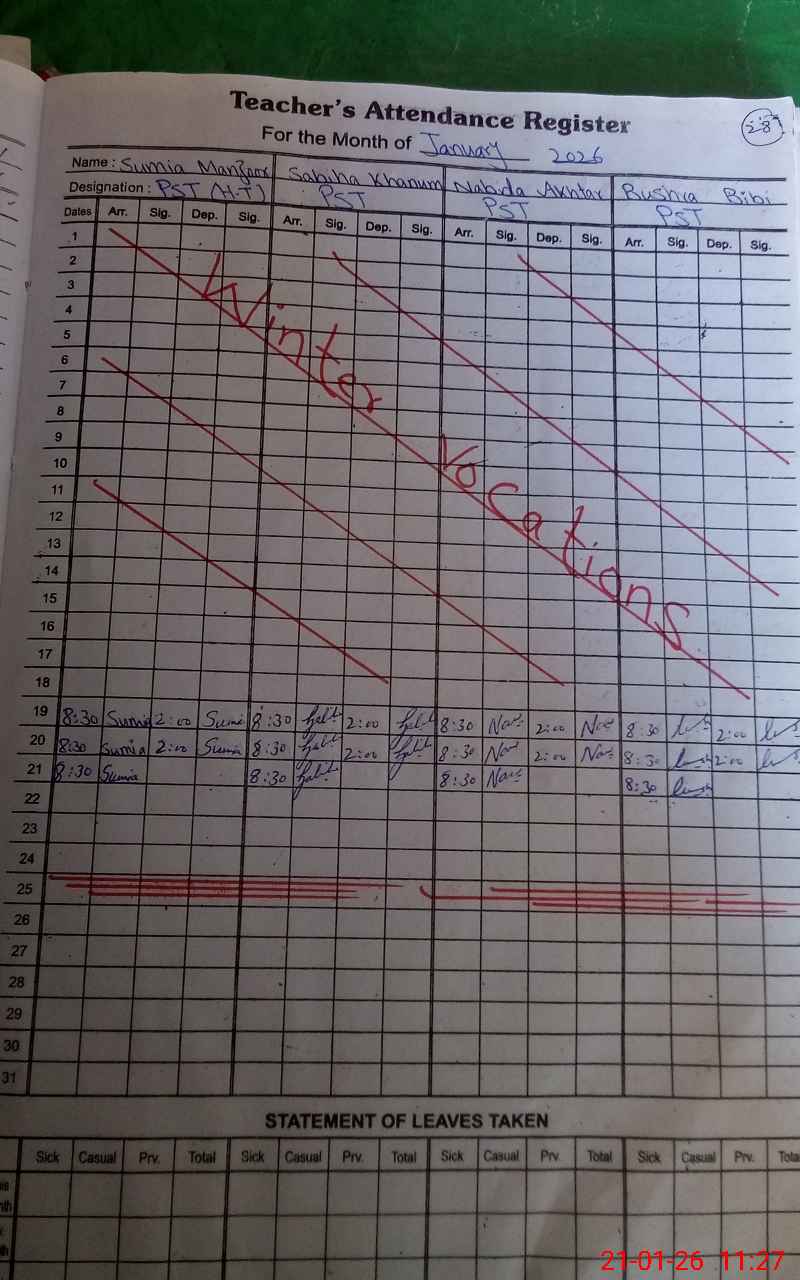 Teacher's Attendance Register
28
For the Month of January 2026
Name : Sumia Manzoor Sabiha Khanum Nabida Akhtar Bushra Bibi
Designation : PST (H-T) PST PST PST
Dates Arr. Sig. Dep. Sig. Arr. Sig. Dep. Sig. Arr. Sig. Dep. Sig. Arr. Sig. Dep. Sig.
1
2
3
4
5
6
7
8
9
10
11
12
13
14
15
16
17
18
Winter Vocations
19 8:30 Sumia 2:00 Sumia 8:30 2:00 8:30 2:00 8:30 2:00
20 8:30 Sumia 2:00 Sumia 8:30 2:00 8:30 2:00 8:30 2:00
21 8:30 Sumia 8:30 8:30 8:30
22
23
24
25
26
27
28
29
30
31
STATEMENT OF LEAVES TAKEN
Sick Casual Prv. Total Sick Casual Prv. Total Sick Casual Prv. Total Sick Casual Prv. Total
21-01-26 11:27